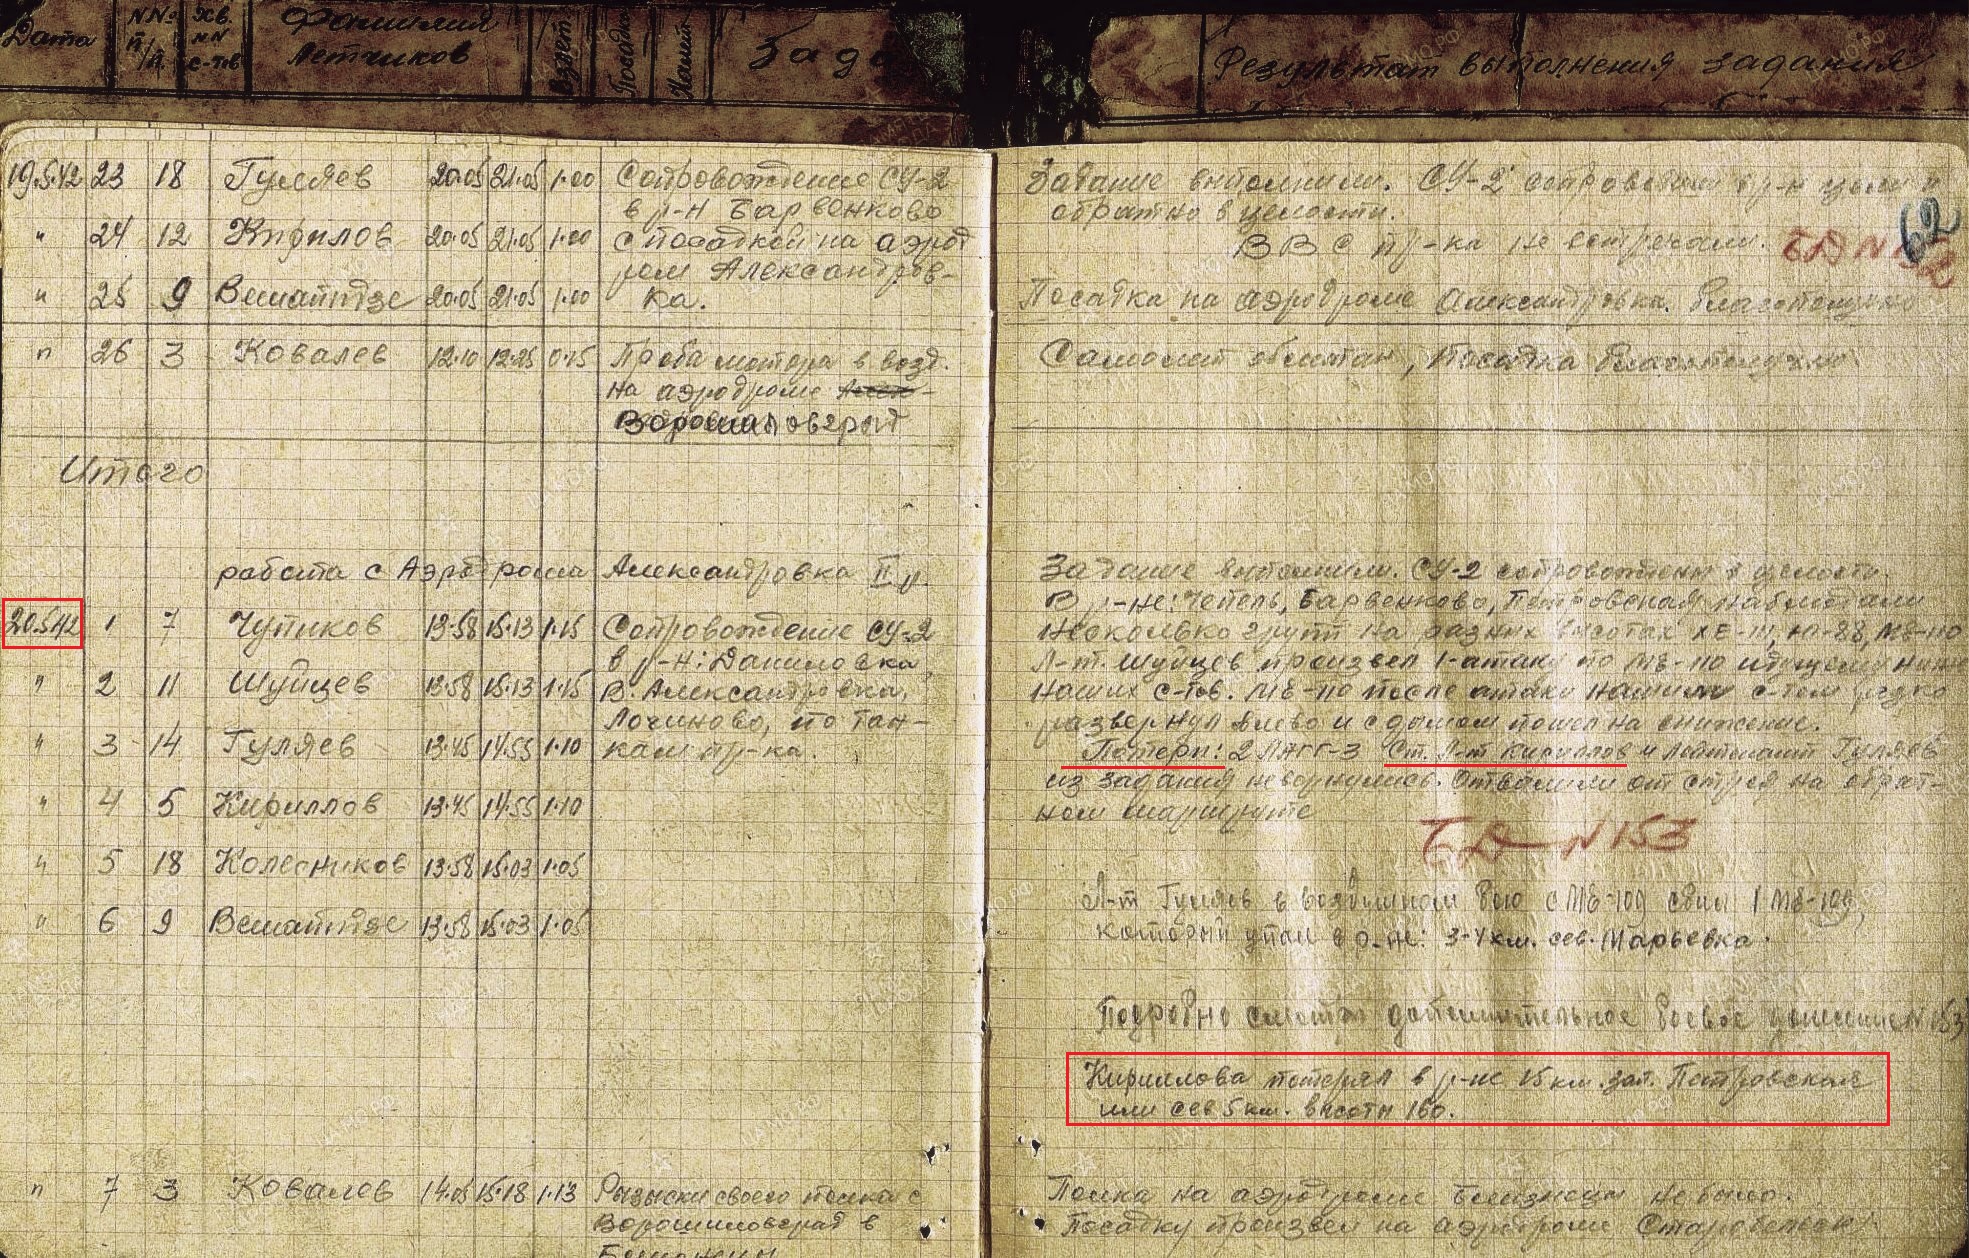 Дата
NN: п/п.
Хв. NN с-тов
Фамилия Летчиков
Взлет
Посадка
Налит
Зада
Результат выполнения задания
19.5.42 23 18 Гуляев 20.05 21.05 1.00 Сопровождение СУ-2
в р-н Барвенково
" 24 12 Кирилов 20.05 21.05 1.00 с посадкой на аэрод
ром Александров-
" 25 9 Вешапидзе 20.05 21.05 1.00 ка.
" 26 3 Ковалев 12.10 12.25 0.15 Проба мотора в возд.
на аэродроме
Ворошиловград
Итого
работа с Аэродрома Александровка II
20.5.42 1 7 Чупиков 13.58 15.13 1.15 Сопровождение СУ-2
в р-н: Даниловка
" 2 11 Шуйцев 13.58 15.13 1.15 В. Александровка,
Лочиново, по тан-
" 3 14 Гуляев 13.45 14.55 1.10 кам пр-ка.
" 4 5 Кириллов 13.45 14.55 1.10
" 5 18 Колесников 13.58 15.03 1.05
" 6 9 Вешапидзе 13.58 15.03 1.05
" 7 3 Ковалев 14.05 15.18 1.13 Розыски своего полка с
Ворошиловград в
Задание выполнили. СУ-2 сопроводили в р-н цели и
обратно в целости.
ВВС пр-ка не встречали.
62
БД N 152
Посадка на аэродроме Александровка. благополучно
Самолет облетан, посадка благополучно
Задание выполнили. СУ-2 сопровождены в целости.
В р-не: Чепель, Барвенково, Петровская наблюдали
несколько групп на разных высотах ХЕ-111, Ю-88, МЕ-110
Л-т. Шуйцев произвел 1-атаку по МЕ-110 идущему ниже
наших с-тов. МЕ-110 после атаки нашим с-том резко
развернул влево и с дымом пошел на снижение.
Потери: 2 ЛАГГ-3 Ст. Л-т Кириллов и лейтенант Гуляев
из задания не вернулись. Отвалили от строя на обрат-
ном маршруте
БД N 153
Л-т Гуляев в воздушном бою с МЕ-109 сбил 1 МЕ-109,
который упал в р-не: 3-4 км. сев. Марьевка.
Подробно смотри дополнительное боевое донесение N 153
Кириллова потерял в р-не 15 км. зап. Петровская
или сев 5 км. высоты 160.
Полка на аэродроме Близнецы не было.
Посадку произвел на аэродроме Старобельск